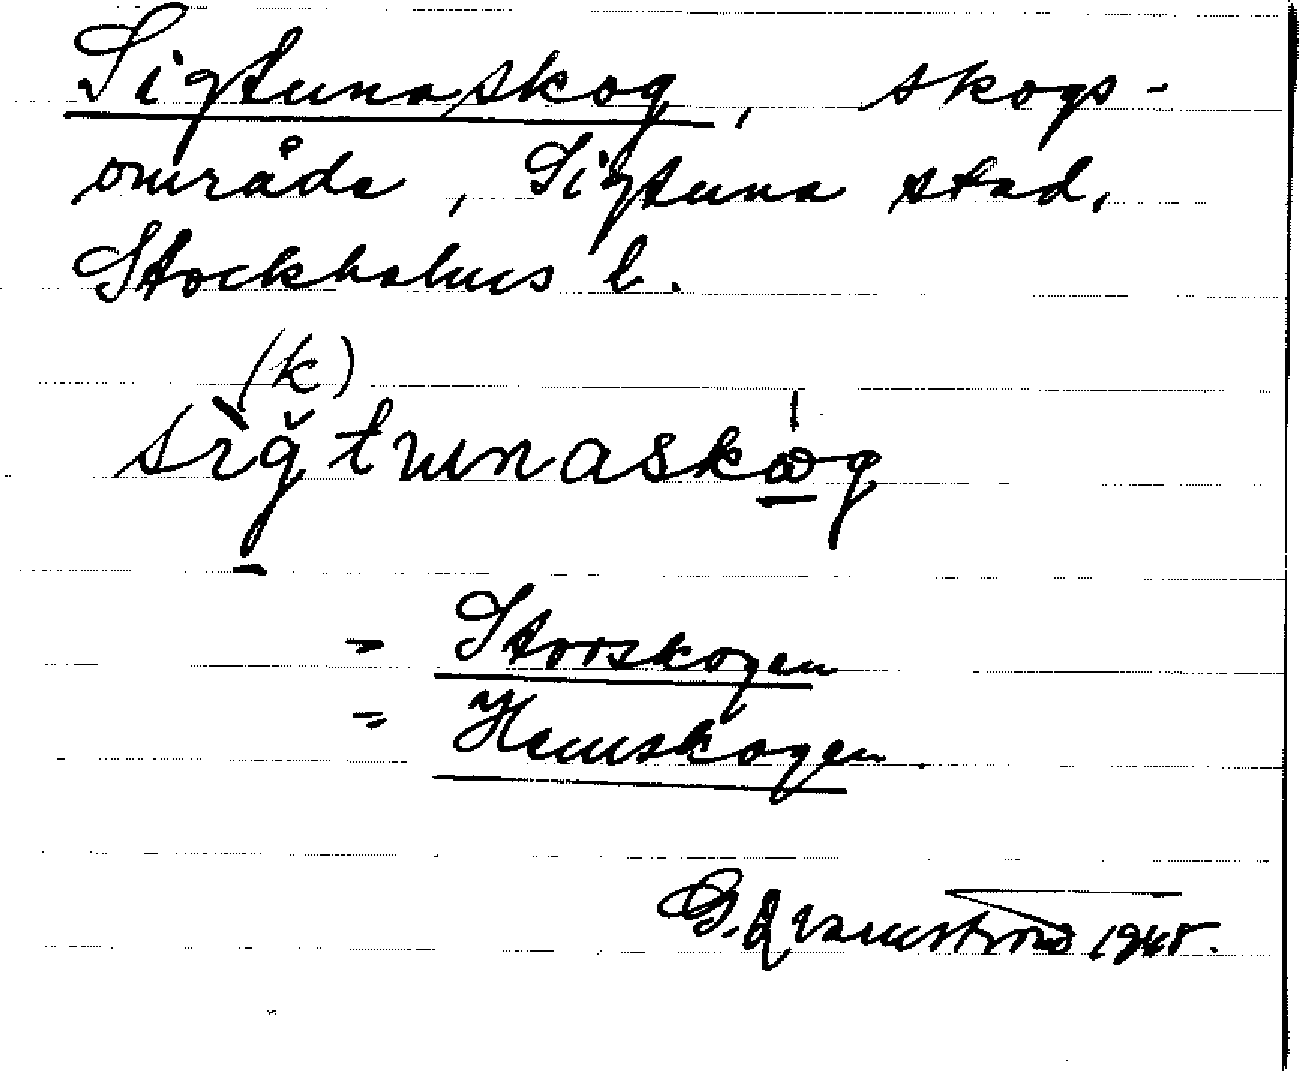 Sigtunaskog, skogs-
område, Sigtuna stad,
Stockholms l.
(k)
sìğtunaskóg
= Storskogen
= Hemskogen.
G. Qvarnström 1945.